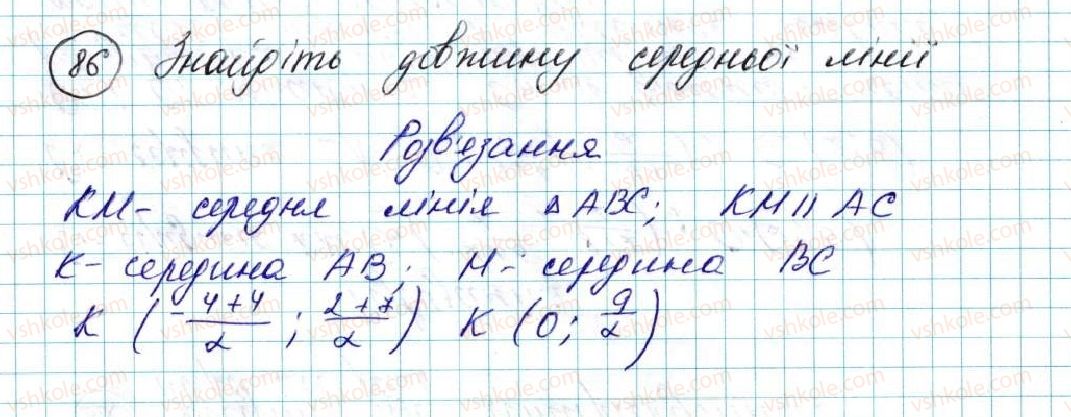 86 Знайдіть довжину середньої лінії
Розв'язання
KM - середня лінія △ABC; KM || AC
K - середина AB; M - середина BC
K (-4+4/2; 2+7/2) K (0; 9/2)